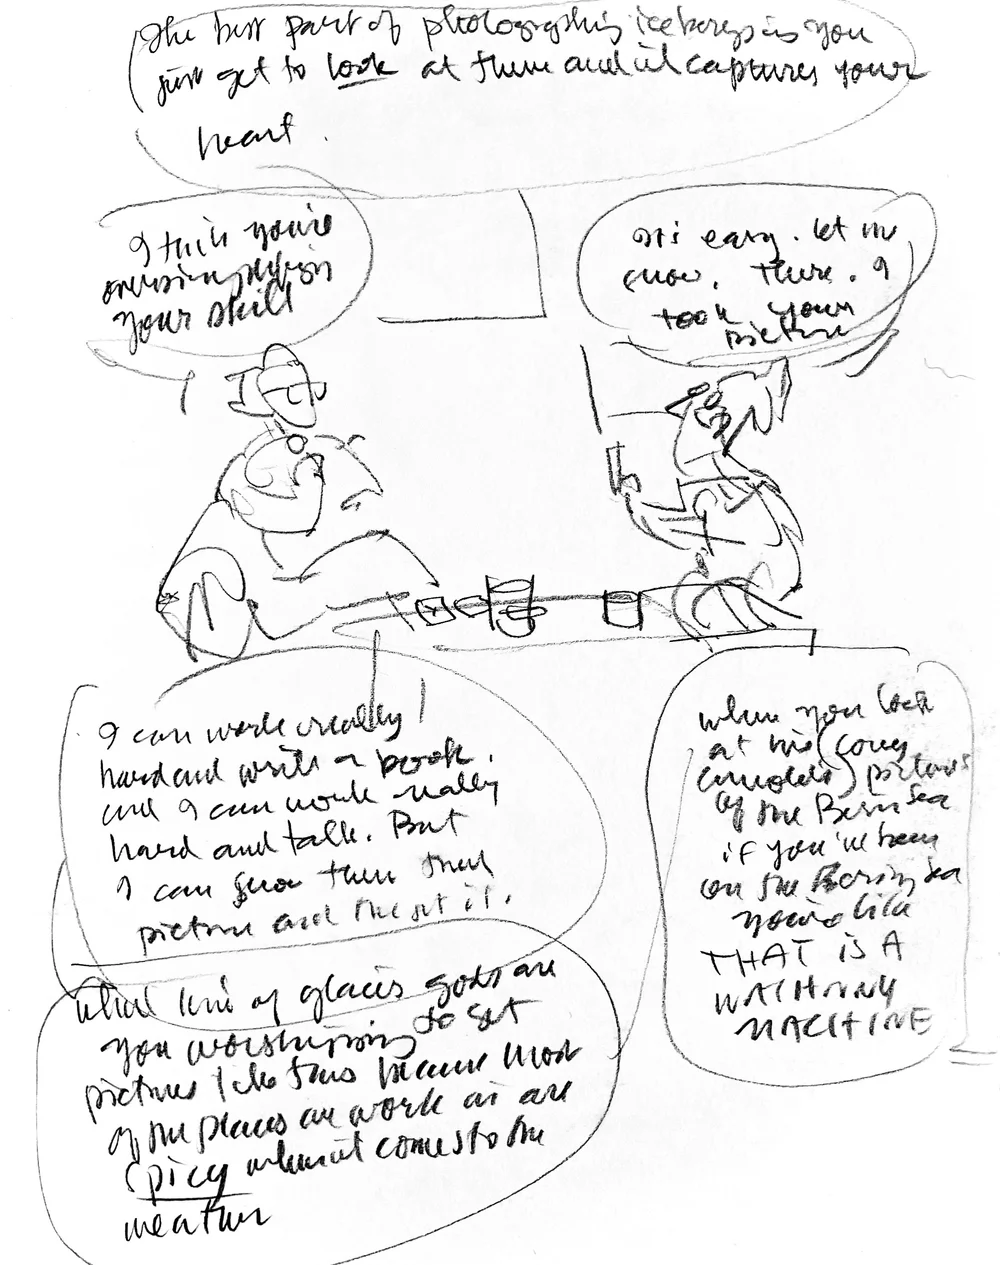 The best part of photographing icebergs is you
just get to look at them and it captures your
heart.
I think you're
your skill
It's easy. Let me
show. There. I
took your
picture
I can work really
hard and write a book.
and I can work really
hard and talk. But
I can show them that
picture and they get it.
What kind of glacier gods are
you worshipping to get
pictures like this because most
of the places we work in are
spicy when it comes to the
weather
When you look
at his (Corey
Arnold's) pictures
of the Bering Sea
if you've been
on the Bering Sea
you're like
THAT IS A
WASHING
MACHINE